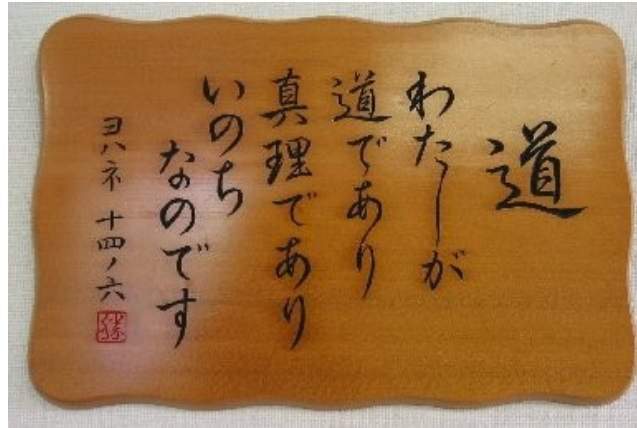 道
わたしが
道であり
真理であり
いのち
なのです
ヨハネ 十四ノ六